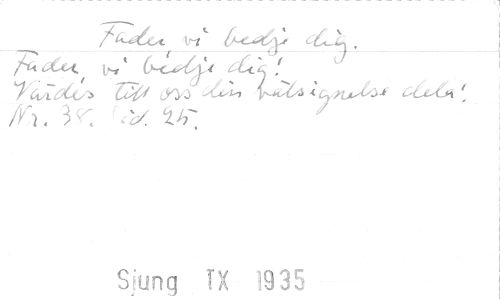 Fader, vi bedje dig.
Fader, vi bedje dig!
Värdes till oss din välsignelse dela!
Nr. 38. Sid. 25.
Sjung IX 1935